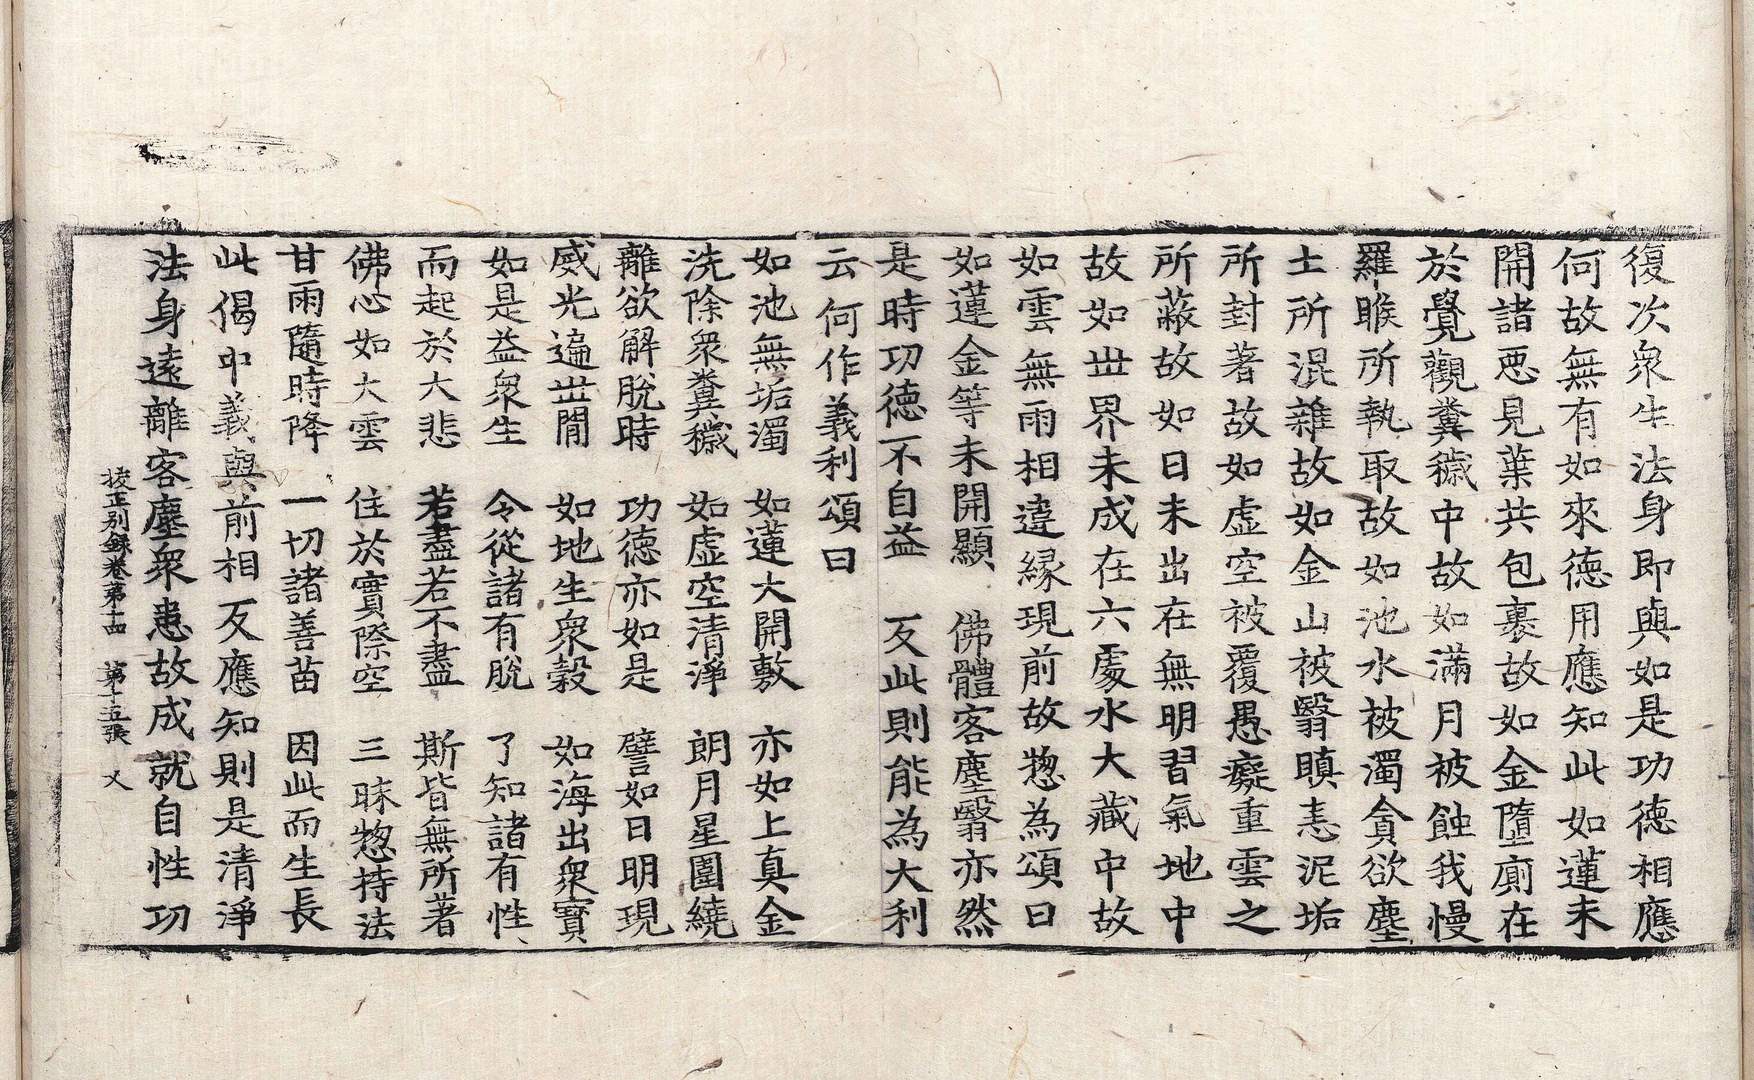 復次衆生法身即與如是功德相應
何故無有如來德用應知此如蓮未
開諸惡見葉共包裹故如金墮廁在
於覺觀糞穢中故如滿月被蝕我慢
羅睺所執取故如池水被濁貪欲塵
土所混雜故如金山被翳瞋恚泥垢
所封著故如虛空被覆愚癡重雲之
所蔽故如日未出在無明習氣地中
故如丗界未成在六處水大藏中故
如雲無雨相違緣現前故惣為頌曰
如蓮金等未開顯 佛體客塵翳亦然
是時功德不自益 反此則能為大利
云何作義利頌曰
如池無垢濁 如蓮大開敷 亦如上真金
洗除衆糞穢 如虛空清淨 朗月星圍繞
離欲解脫時 功德亦如是 譬如日明現
威光遍丗間 如地生衆穀 如海出衆寶
如是益衆生 令從諸有脫 了知諸有性
而起於大悲 若盡若不盡 斯皆無所著
佛心如大雲 住於實際空 三昧惣持法
甘雨隨時降 一切諸善苗 因此而生長
此偈中義與前相反應知則是清淨
法身遠離客塵衆患故成就自性功
挍正別錄卷第十四 第十五張 乂